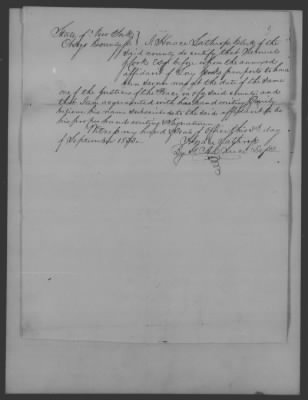 State of New York
Otsego County ss } I, Horace Lathrop Clerk of the
said county do certify that
Esq before whom the annexed
affidavit of purports to have
been sworn was at the date of the same
one of the Justices of the Peace in & for said County and
that I am acquainted with his hand writing & verily
believe his name subscribed to the said affidavit to be
his proper hand writing & signature.
Witness my hand & Seal of Office this day
of September
Horace Lathrop
By